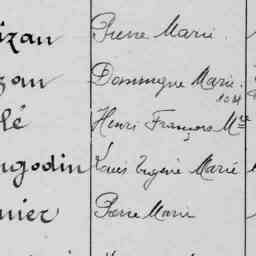 izan Pierre Marie.
zan Dominique Marie.
lé Henri François Mie
ngodin Louis Eugène Marie
nier Pierre Marie